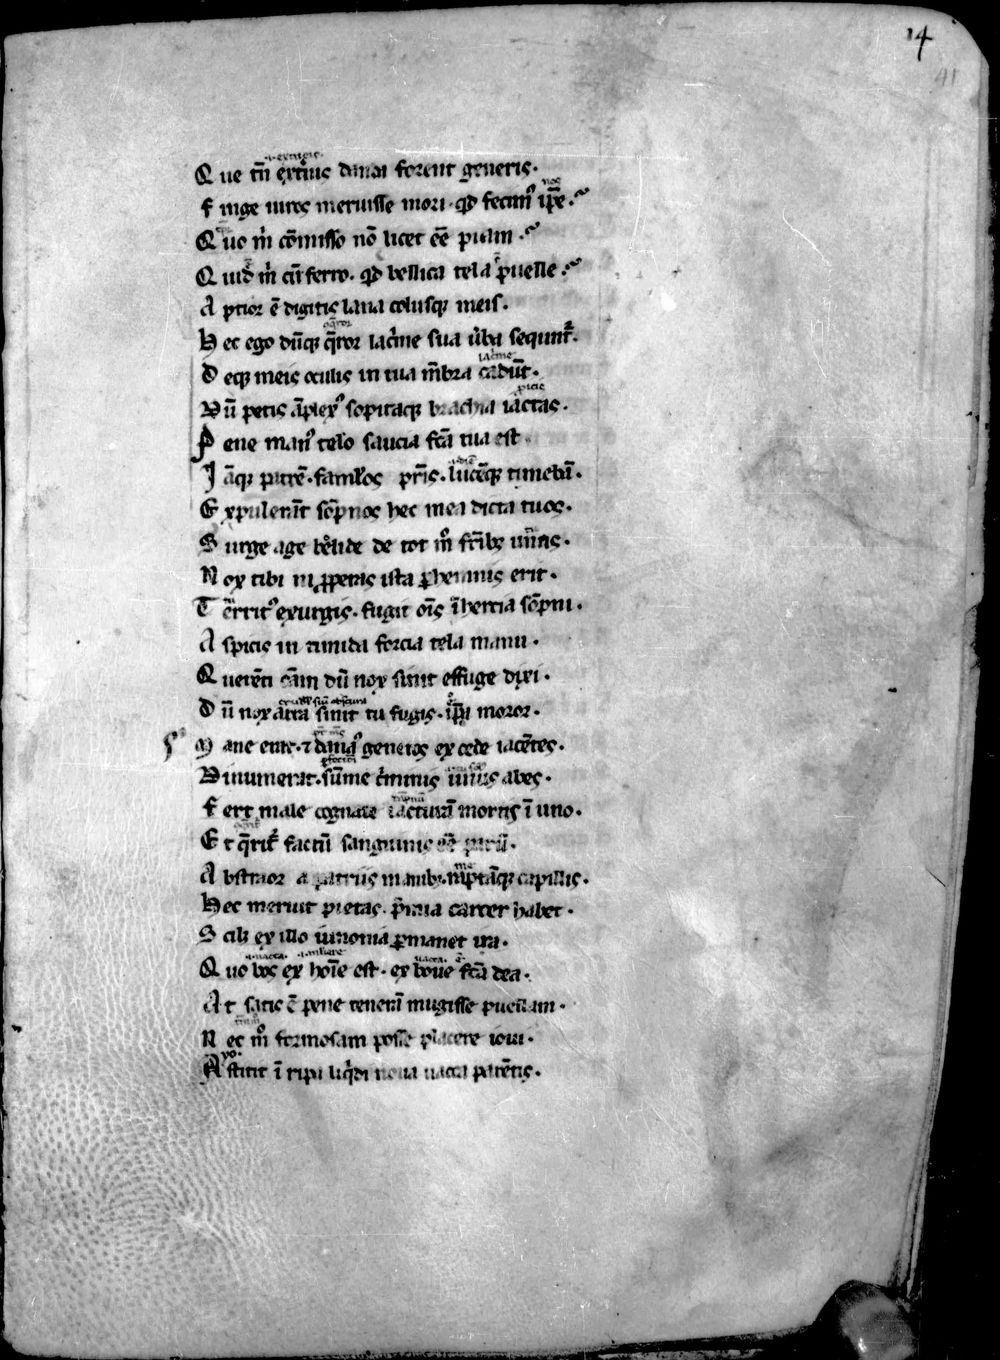 14
41
Q ue tn̄ ext'ius dandi forent generis.
F inge uiros meruisse mori. qd fecim9 ip̄e.
Q uo m̍ cōmisso nō licet eē piam.
Q uid m̍ cū ferro. qd bellica tela puelle.
A ptior ē digitis lana colusq; meis.
H ec ego dūq; q̄ror lac̍me sua u̍ba sequnt᷑.
D eq; meis oculis in tua mēbra cadūt.
D ū petis āplex9 sopitaq; brachia iactas.
P ene man9 telo saucia fc̄a tua est.
I āq; patrē. famlos pr̄is. lucēq; timebā.
E xpulerāt sōpnos hec mea dicta tuos.
S urge age belide de tot m̊ fr̄ib; unus.
N ox tibi ni pperas ista phennis erit.
T errit9 exurgis. fugit oīs īhertia sōpni.
A spicis in timida forcia tela manu.
Q uerēti cām dū nox sinit effuge dixi.
D ū nox atra sinit tu fugis. ip̄a moror.
M ane erat. ⁊ dana9 generos ex cede iacētes.
D inumerat. sūme c̍minis unus abes.
F ert male cognate iacturā mortis ī uno.
E t q̄rit᷑ factū sanguinis eē parū.
A bstraor a patriis manib;. raptāq; capillis.
H ec meruit pietas. p̄mia carcer habet.
S cil; ex illo iunonia pmanet ira.
Q uo bos ex hoīe est. ex boue fc̄a dea.
A t satis ē pene tenerā mugisse puellam.
N ec m̊ formosam posse placere ioui.
A stitit ī ripa liq̍di noua uacca parētis.